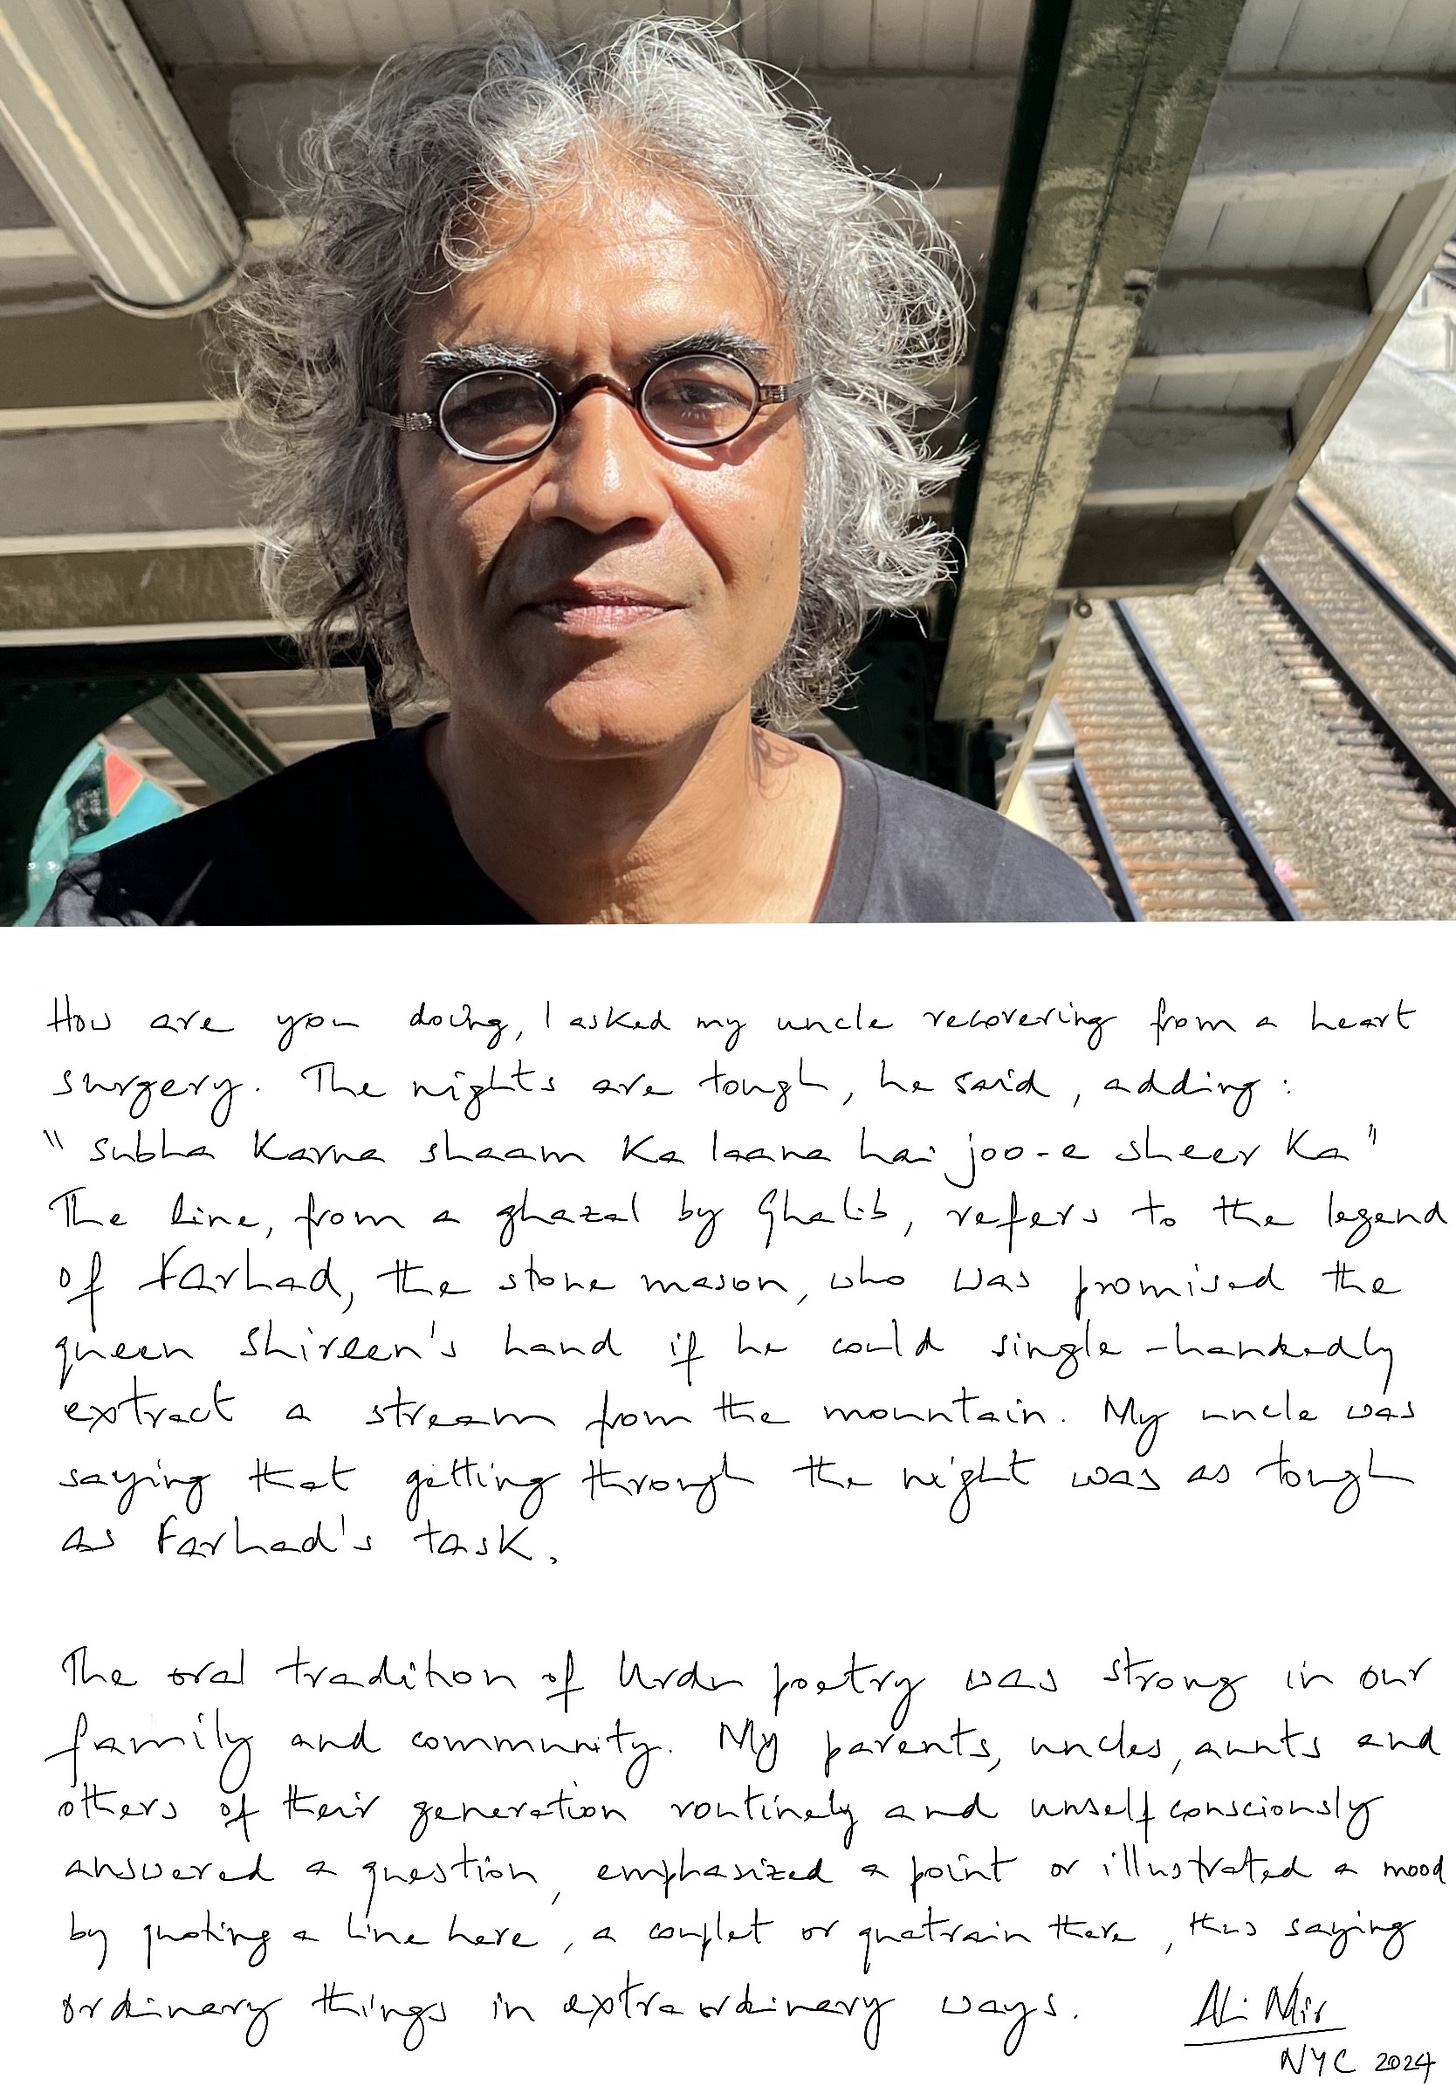 How are you doing, I asked my uncle recovering from a heart
surgery. The nights are tough, he said, adding:
"Subha karna shaam ka laana hai joo-e sheer ka"
The line, from a ghazal by Ghalib, refers to the legend
of Farhad, the stone mason, who was promised the
queen Shireen's hand if he could single-handedly
extract a stream from the mountain. My uncle was
saying that getting through the night was as tough
as Farhad's task.
The oral tradition of Urdu poetry was strong in our
family and community. My parents, uncles, aunts and
others of their generation routinely and unselfconsciously
answered a question, emphasized a point or illustrated a mood
by quoting a line here, a couplet or quatrain there, thus saying
ordinary things in extraordinary ways.
Ali Mir
NYC 2024